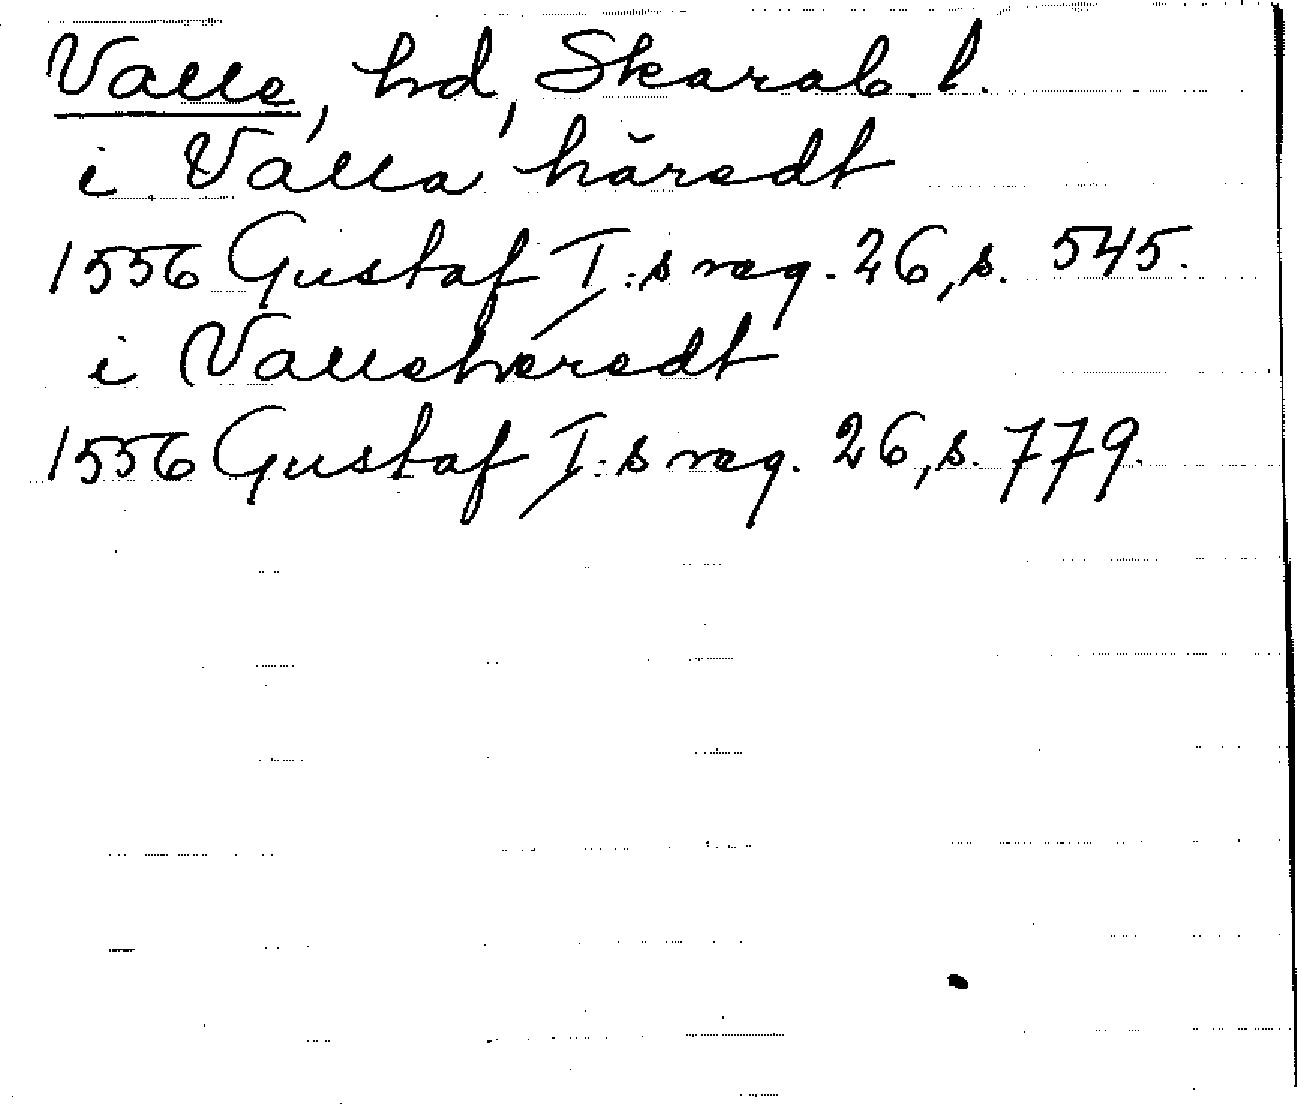 Valle, hd, Skarab. l.
i Valla häredt
1556 Gustaf I:s reg. 26, s. 545.
i Valleheredt
1556 Gustaf I:s reg. 26, s. 779.